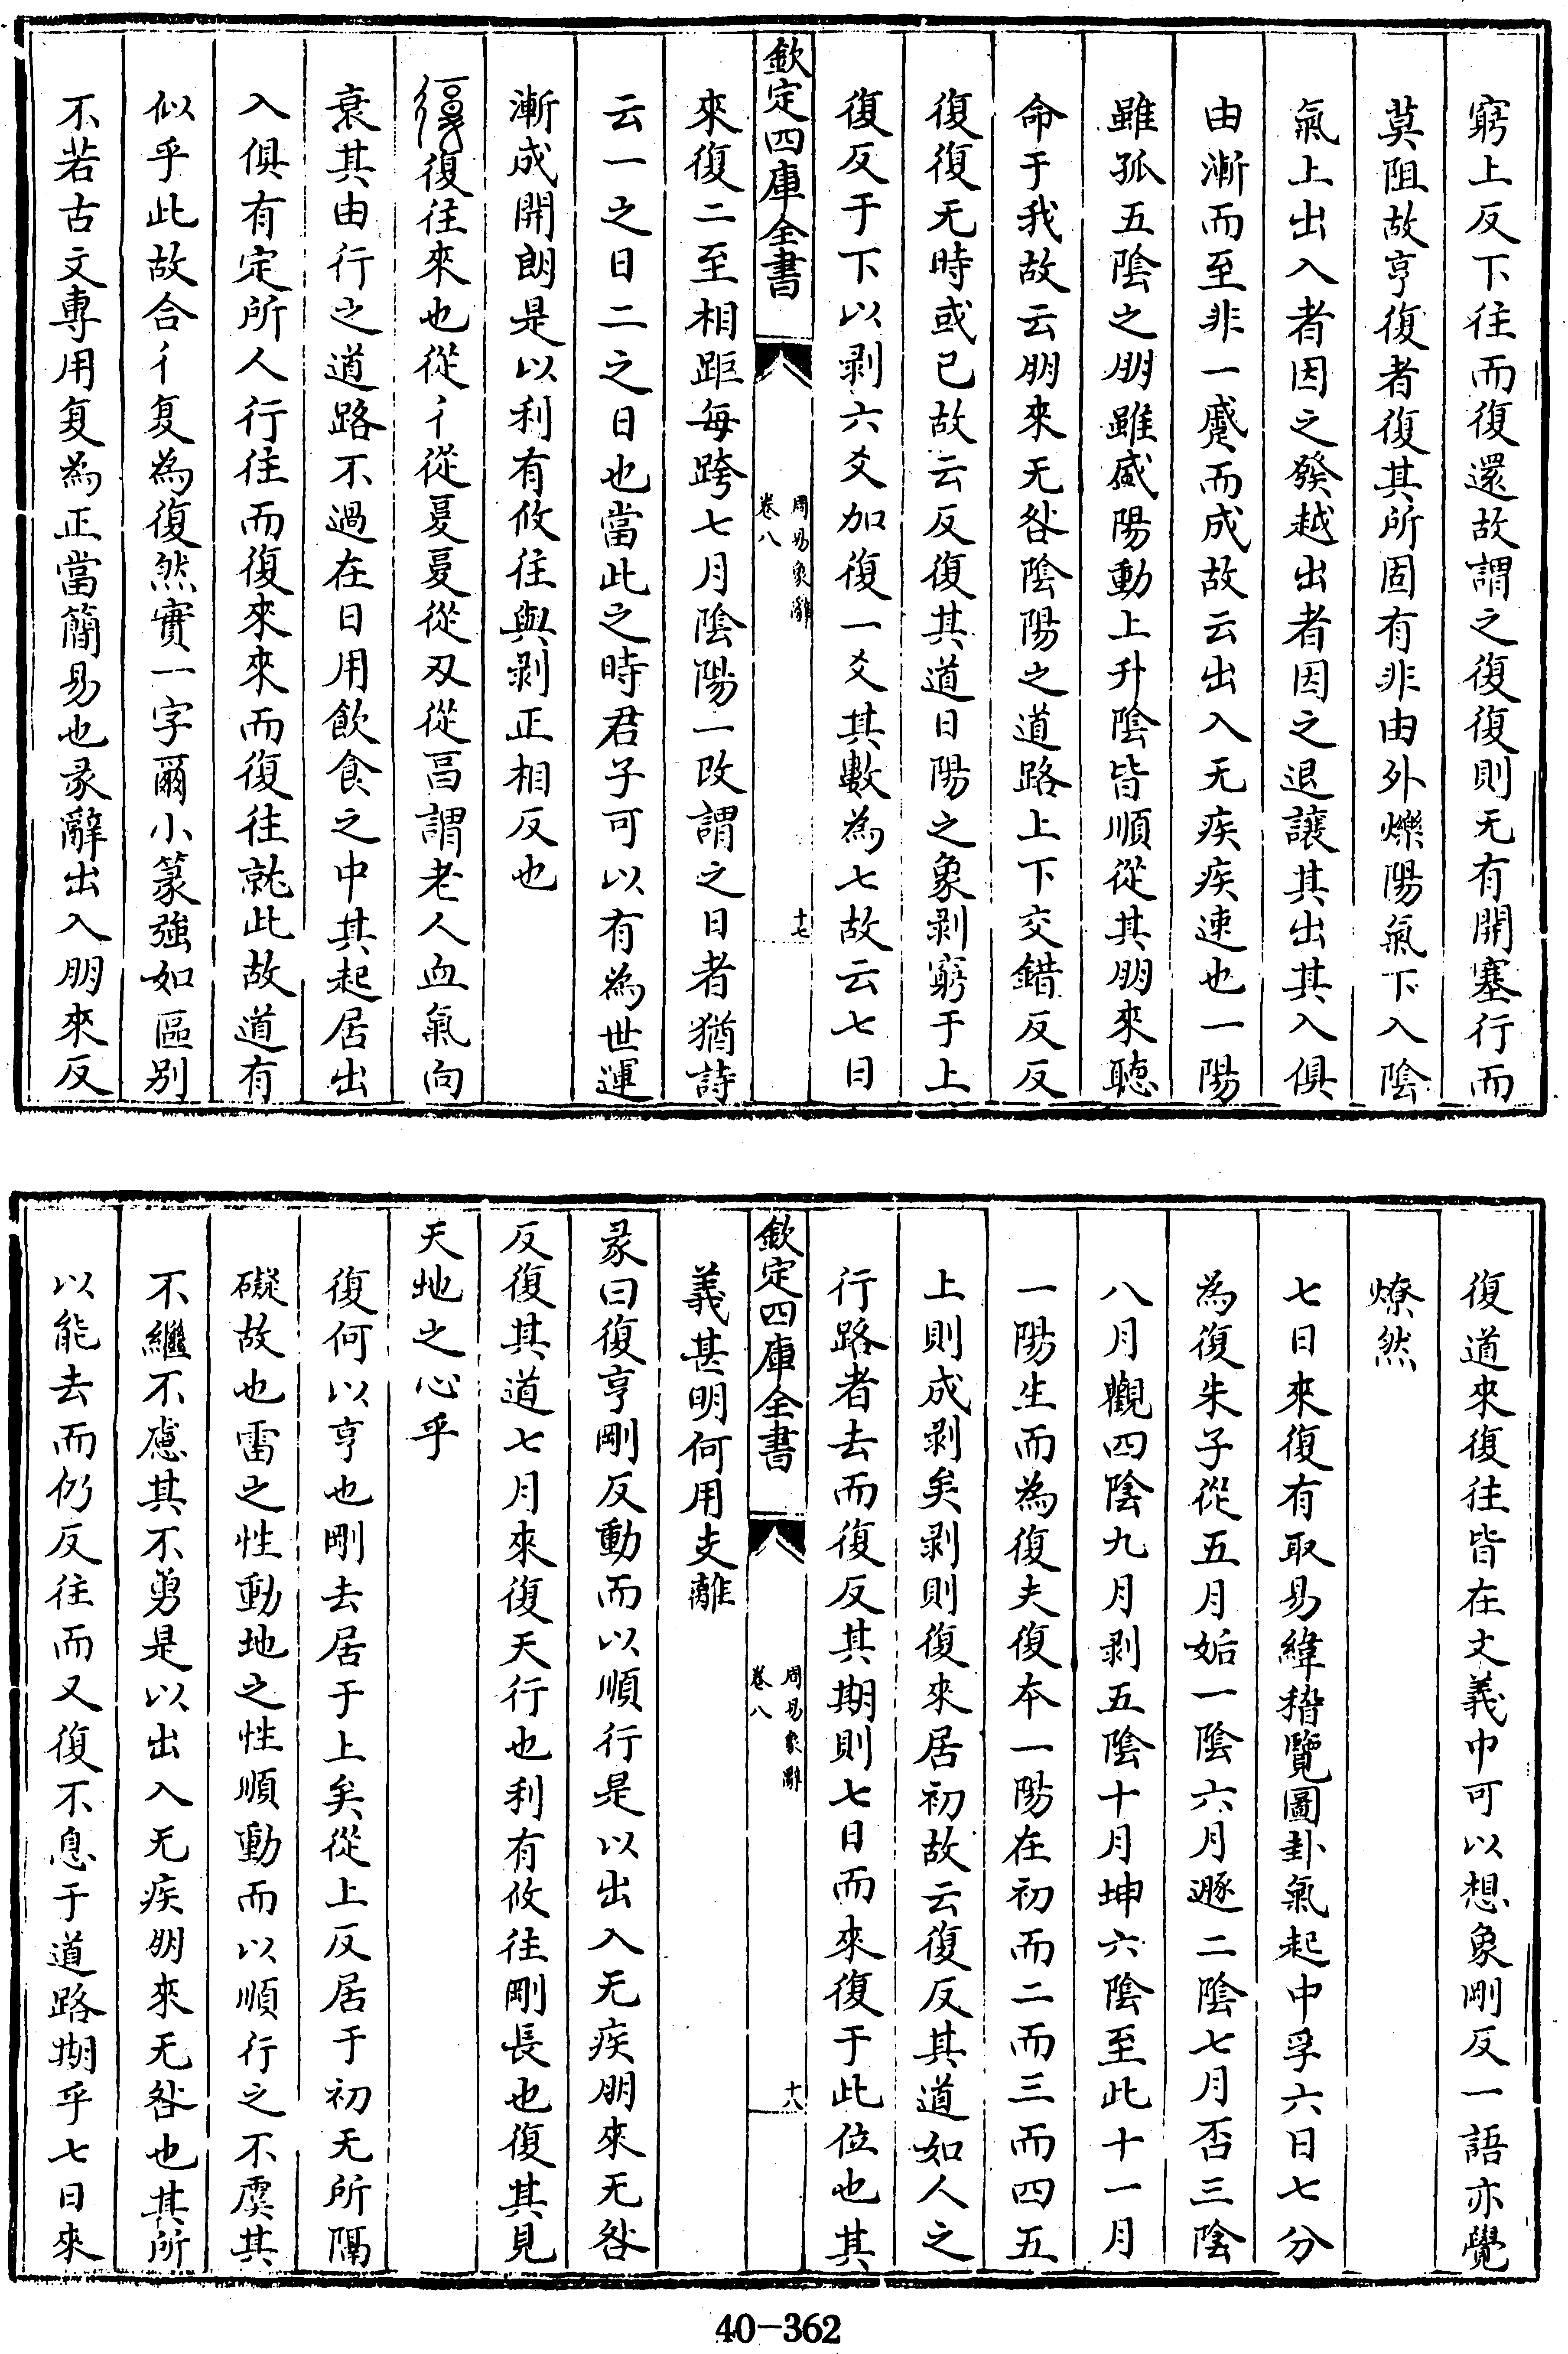 窮上反下往而復還故謂之復復則无有開塞行而
莫阻故亨復者復其所固有非由外爍陽氣下入陰
氣上出入者因之發越出者因之退讓其出其入俱
由漸而至非一蹙而成故云出入无疾疾速也一陽
雖孤五陰之朋雖盛陽動上升陰皆順從其朋來聽
命于我故云朋來无咎陰陽之道路上下交錯反反
復復无時或已故云反復其道日陽之象剥窮于上
復反于下以剥六爻加復一爻其數為七故云七日
欽定四庫全書
周易象辭
卷八
十七
來復二至相距每跨七月陰陽一改謂之日者猶詩
云一之日二之日也當此之時君子可以有為世運
漸成開朗是以利有攸往與剥正相反也
復往來也從彳從夏夏從刄從畗謂老人血氣向
衰其由行之道路不過在日用飲食之中其起居出
入俱有定所人行往而復來來而復往就此故道有
似乎此故合彳复為復然實一字爾小篆強如區别
不若古文專用复為正當簡易也彖辭出入朋來反
復道來復往皆在文義中可以想象剛反一語亦覺
燎然
七日來復有取易緯稽覽圖卦氣起中孚六日七分
為復朱子從五月姤一陰六月遯二陰七月否三陰
八月觀四陰九月剥五陰十月坤六陰至此十一月
一陽生而為復夫復本一陽在初而二而三而四五
上則成剥矣剥則復來居初故云復反其道如人之
行路者去而復反其期則七日而來復于此位也其
欽定四庫全書
周易象辭
卷八
十八
義甚明何用支離
彖曰復亨剛反動而以順行是以出入无疾朋來无咎
反復其道七月來復天行也利有攸往剛長也復其見
天地之心乎
復何以亨也剛去居于上矣從上反居于初无所隔
礙故也雷之性動地之性順動而以順行之不虞其
不繼不慮其不勇是以出入无疾朋來无咎也其所
以能去而仍反往而又復不息于道路期乎七日來
40-362